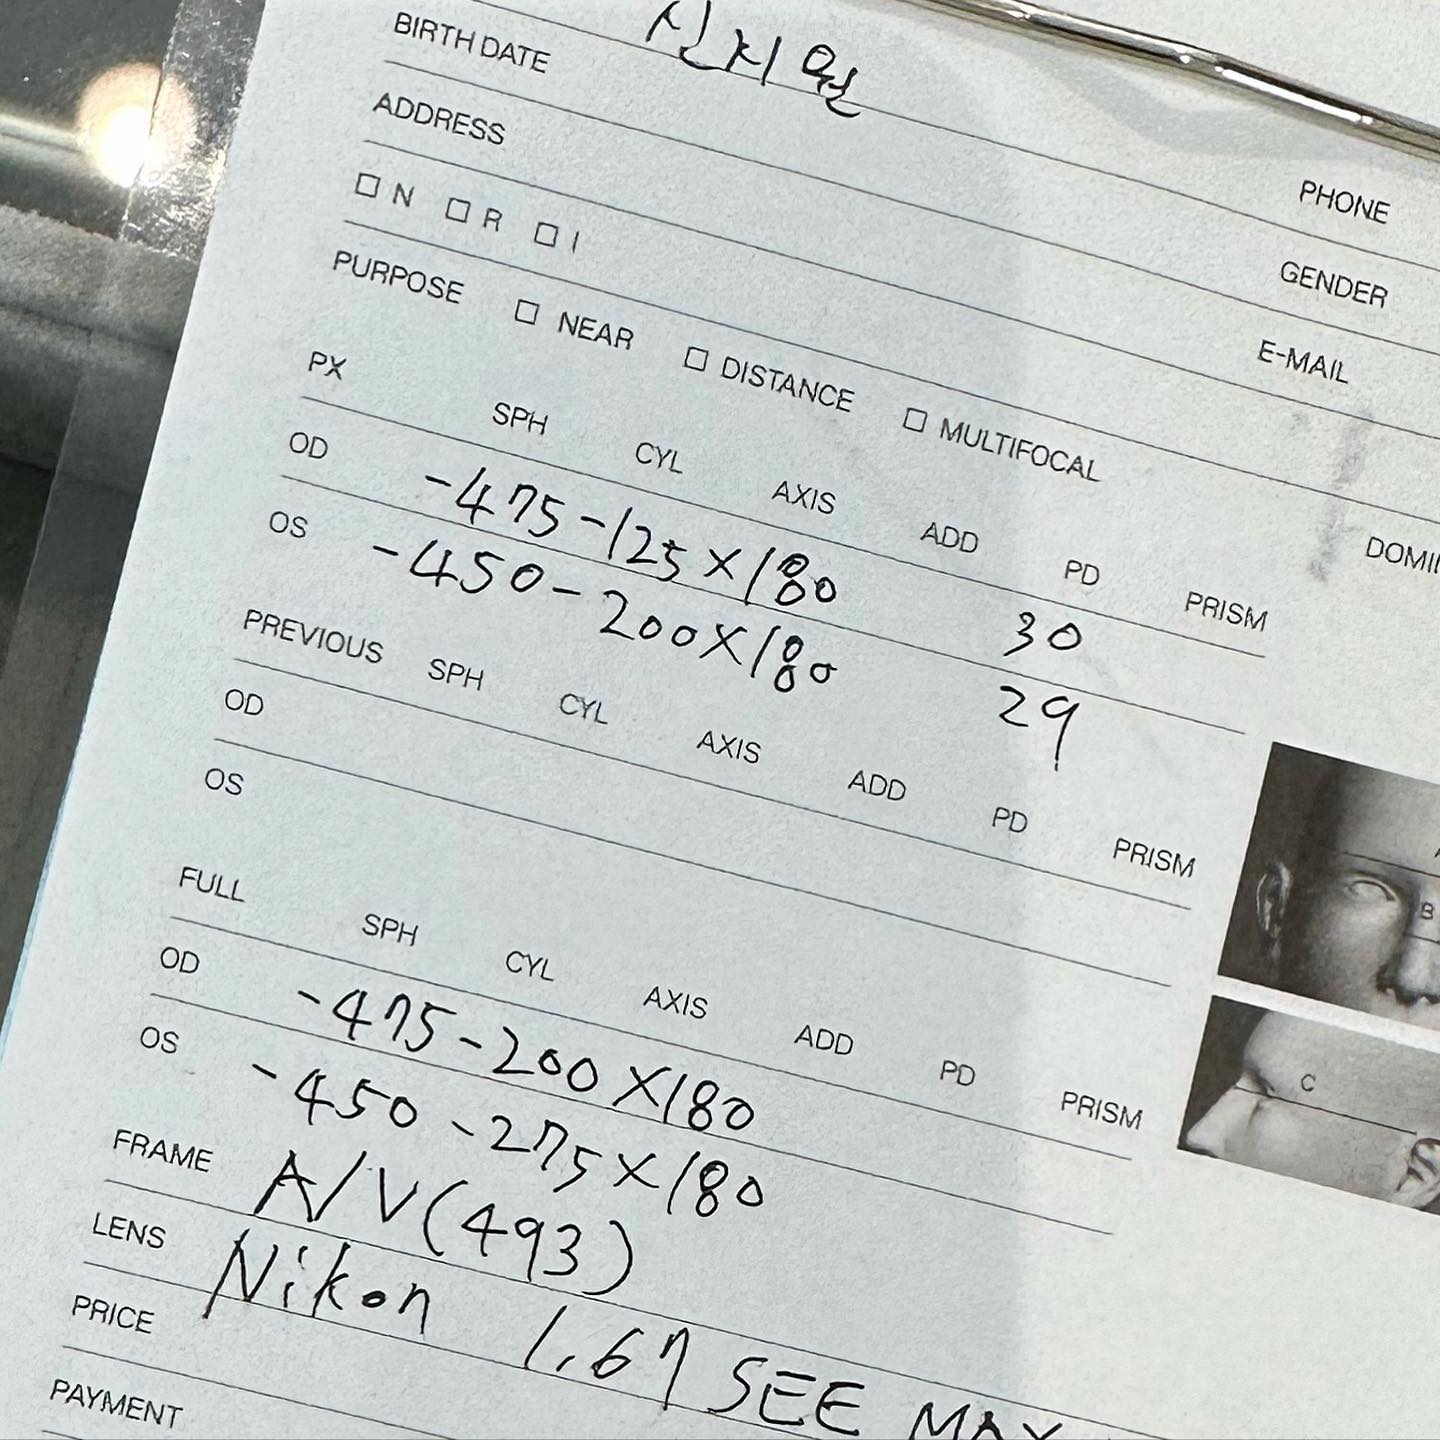 신지원
BIRTH DATE
ADDRESS
PHONE
☐ N ☐ R ☐ I
GENDER
PURPOSE ☐ NEAR ☐ DISTANCE ☐ MULTIFOCAL
E-MAIL
PX SPH CYL AXIS ADD PD PRISM
OD -475-125X180 30
OS -450-200X180 29
PREVIOUS SPH CYL AXIS ADD PD PRISM
OD
OS
FULL SPH CYL AXIS ADD PD PRISM
OD -475-200X180
OS -450-275X180
FRAME A/V(493)
LENS Nikon 1.67 SEE MAX
PRICE
PAYMENT
B
C